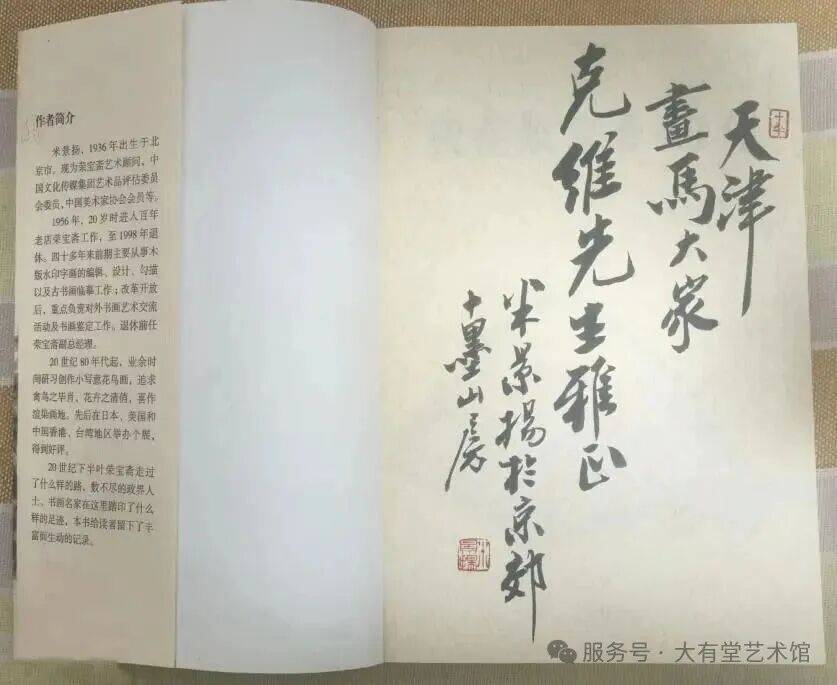 作者简介
米景扬，1936年出生于北
京市。现为荣宝斋艺术顾问，中
国文化传媒集团艺术品评估委员
会委员，中国美术家协会会员等。
1956年，20岁时进入百年
老店荣宝斋工作，至1998年退
休。四十多年来前期主要从事木
版水印字画的编辑、设计、勾描
以及古书画临摹工作；改革开放
后，重点负责对外书画艺术交流
活动及书画鉴定工作。退休前任
荣宝斋副总经理。
20世纪80年代起，业余时
间研习创作小写意花鸟画，追求
禽鸟之毕肖，花卉之清俏，喜作
渲染画地。先后在日本、美国和
中国香港、台湾地区举办个展，
得到好评。
20世纪下半叶荣宝斋走过
了什么样的路，数不尽的政界人
士、书画名家在这里踏印了什么
样的足迹，本书给读者留下了丰
富而生动的记录。
天津
畫馬大家
克維先生雅正
米景揚於京郊
十墨山房
服务号·大有堂艺术馆